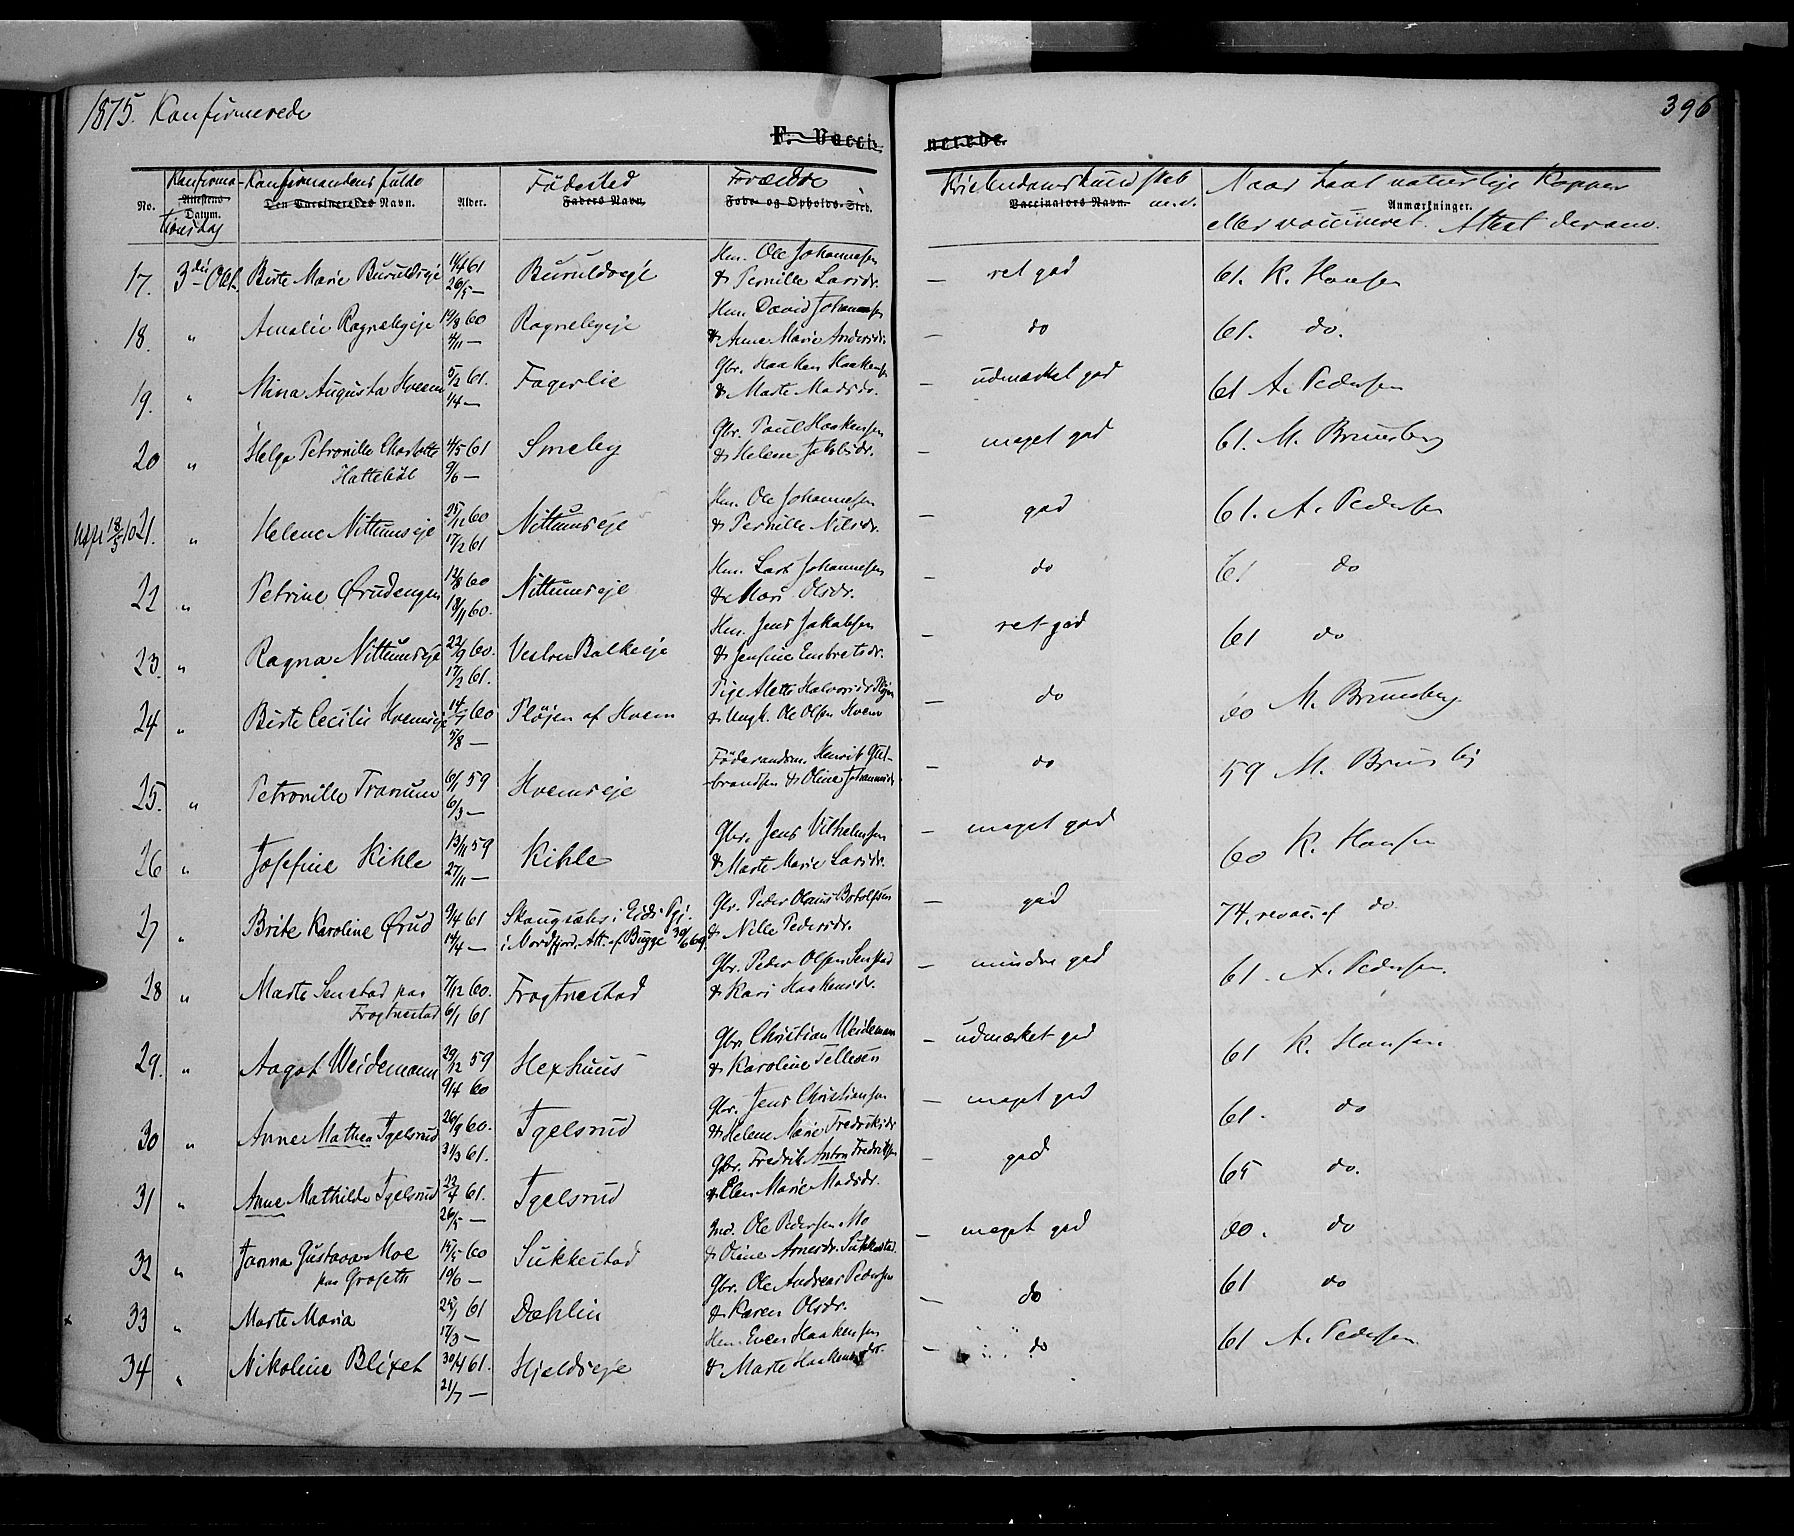 1875. Konfirmerede
396
F. Vacci-
nerede.
No.
Konfirma-
Attestens
Datum.
Konfirmandens fulde
Den Vaccineredes Navn.
Alder.
Födested
Faders Navn.
Forældre
Føde- og Opholds-Sted.
Kristendomskundskab
Vaccinators Navn. m.v.
Naar havt naturlige Kopper
Anmærkninger.
eller vaccineret. Attest derom.
17. 3die Okt. Birte Marie Buruldseje 61 26/5 — Buruldseje Hm. Ole Johannesen & Pernille Larsdr. — ret god 61. K. Hansen
18. " Amalie Ragnaleyeje 19/8 60 4/11 — Ragnaleyeje Hm. David Johannesen & Anne Marie Andersdr. — do 61. do.
19. " Mina Augusta Hveem 5/2 61. 1/4 — Fagerlie Gbr. Haaken Haakensen & Marte Madsdr. — udmærket god 61 A. Pedersen
20 " Helga Petronille Charlotte Hattebøl 4/5 61 9/6 — Smeby Gbr. Paul Haakensen & Helene Jakobsdr. — meget god 61. M. Bruusberg
21. " Helene Nittumseje 25/11 60 17/2 61 Nittumseje Hm. Ole Johannesen & Pernille Nilsdr. — god 61. A. Pedersen
22 " Petrine Ørudengen 12/8 60 18/11 60. Nittumseje Hm. Lars Johannesen & Mari Olsdr. — do 61 do
23. " Ragna Nittumseje 22/9 60. 17/2 61. Vestre Balkeeje Hm. Jens Jakobsen & Jensine Embretsdr. — ret god 61 do
24 " Birte Cecilie Hvemseje 60 5/8 — Pløjen af Hvem Pige Alette Halvorsdr. & Ungk. Ole Olsen Hvem — do do M. Bruusberg
25. " Petronille Tranum 6/1 59 6/3 — Hvemseje Föderaadsm. Henrik Gul- brandsen & Oline Johannesdr. — do 59 M. Brusbg
26 " Josefine Kihle 13/11 59 27/11 — Kihle Gbr. Jens Vilhelmsen & Marte Marie Larsdr. — meget god 60 K. Hansen
27 " Brite Karoline Ørud 9/4 61 14/4 — Skougsæter i Eids Pgj. i Nordfjord. Att. af Bugge 30/6 69. Gbr. Peder Olaus Botolfsen & Nille Pedersdr. — god 74. revac. af do.
28 " Marte Senstad paa Frogtnestad 7/12 60. 6/1 61 Frogtnestad Gbr. Peder Olsen Senstad & Kari Haakensdr. — mindre god 61. A. Pedersen.
29. " Aagot Weidemann 29/12 59 9/4 60 Hexhuus Gbr. Christian Weidemann & Karoline Tellesen — udmærket god 61 K. Hansen
30 " Anne Mathea Igelsrud 26/9 60. 31/3 61. Igelsrud Gbr. Jens Christiansen & Helene Marie Fredriksdr. — meget god 61. do
31 " Anne Mathilde Igelsrud 23/4 61. 26/5 — Igelsrud Gbr. Fredrik Anton Fredriksen & Elen Marie Madsdr. — god 65 do.
32 " Janna Gustava Moe paa Grøseth 15/5 60 10/6 — Sukkestad Ind. Ole Pedersen Mo & Oline Arnesdr. Sukkestad. — meget god 60. do
33 " Marte Maria 25/1 61 17/3 — Dæhlin Gbr. Ole Andreas Pedersen & Karen Olsdr. — do 61 do
34 " Nikoline Blixet 30/4 61. 21/7 — Hjeldseje Hm. Even Haakensen & Marte Haakensdr. — do 61 A. Pedersen